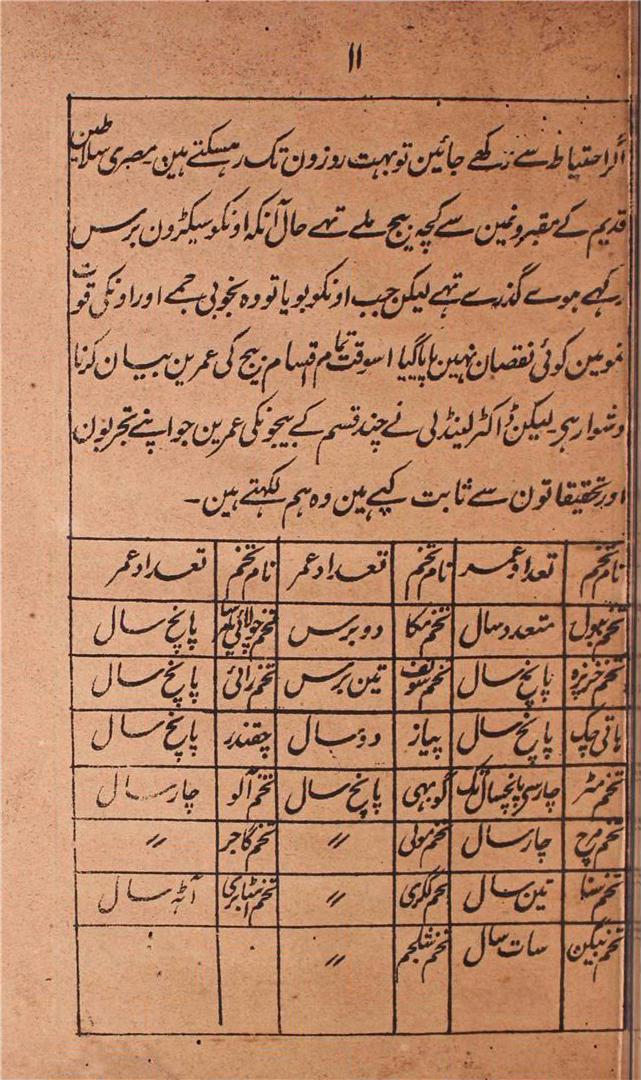 ۱۱
اگر احتیاط سے رکھے جائین تو بہت روزون تک رہ سکتے ہین مصری سلاطین
قدیم کے مقبرونمین سے کچھ بیج ملے تہے حال آنکہ اونکو سیکڑون برس
رکہے ہوے گذرے تہے لیکن جب اونکو بویا تو وہ بخوبی جمے اور اونکی قوت
نمو مین کوئی نقصان نہین پایا گیا اسوقت تمام اقسام بیج کی عمرین بیان کرنا
دشوار ہی لیکن ڈاکٹر لینڈلی نے چند قسم کے بیجونکی عمرین جو اپنے تجربون
اور تحقیقاتون سے ثابت کیے ہین وہ ہم لکہتے ہین ۔
نام تخم تعداد عمر نام تخم تعداد عمر نام تخم تعداد عمر
تخم ببول متعدد سال تخم مکا دو برس تخم چولائی پانچ سال
تخم خربزہ پانچ سال تخم سونف تین برس تخم رائی پانچ سال
ہاتی چک پانچ سال پیاز دو سال چقندر پانچ سال
تخم مٹر چار سے پانچسال تک گوبہی پانچ سال تخم آلو چار سال
تخم مرچ چار سال تخم مولی // تخم گاجر //
تخم سنا تین سال تخم ککڑی // تخم اسٹابری آٹہ سال
تخم بیگن سات سال تخم شلجم //